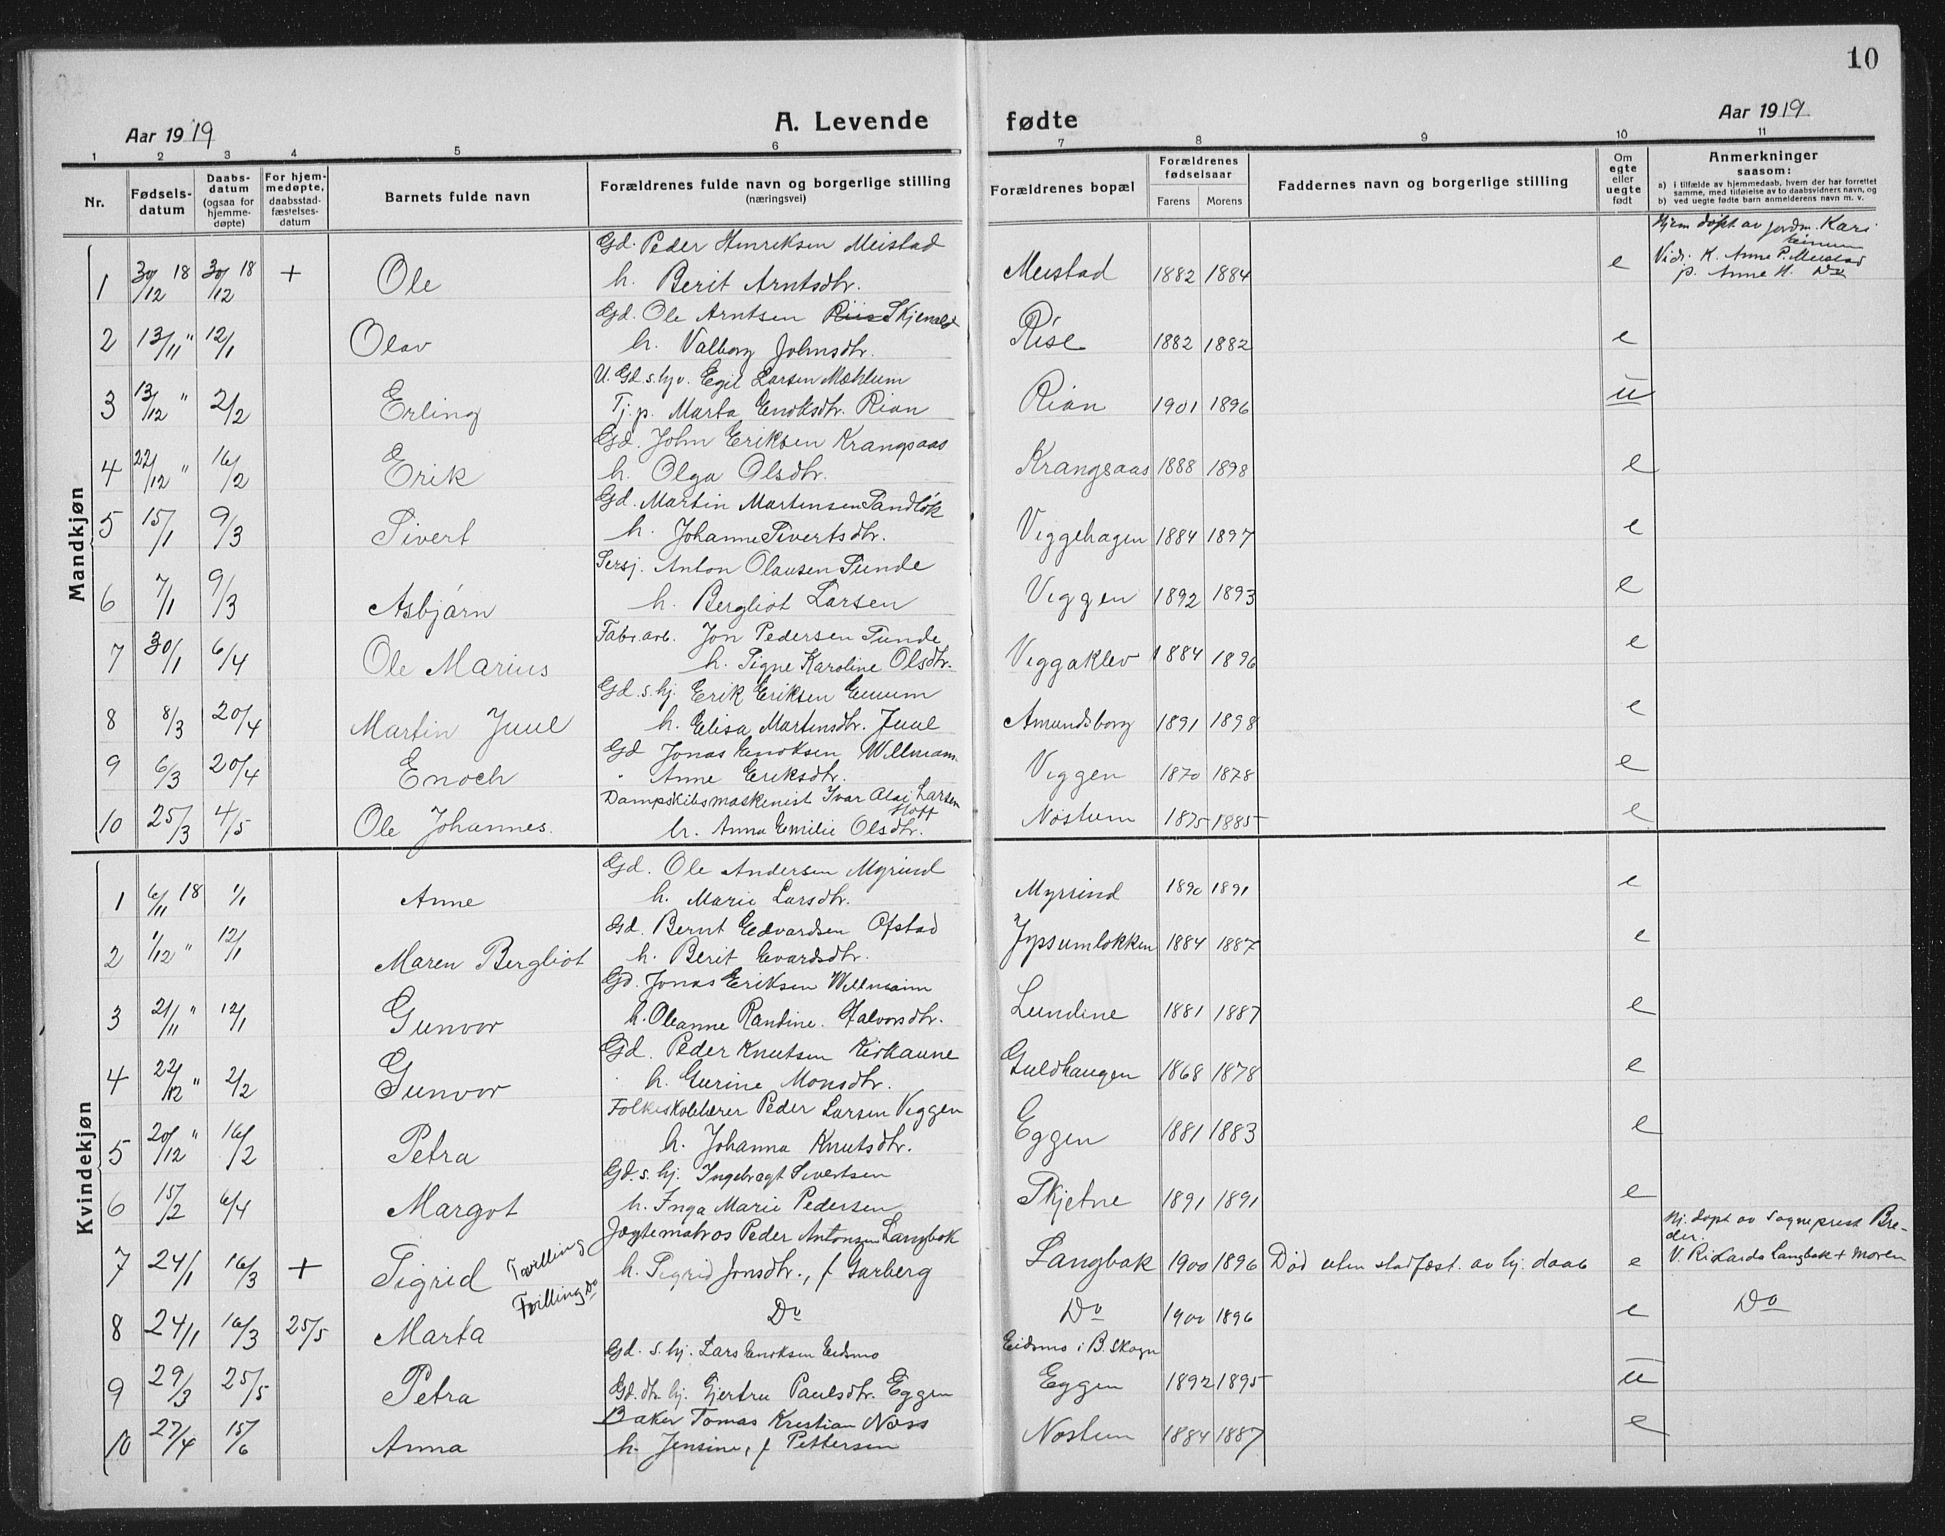 10
Aar 1919
A. Levende fødte
Aar 1919
1 2 3 4 5 6 7 8 9 10 11
Nr.
Fødsels-
datum
Daabs-
datum
(ogsaa for
hjemme-
døpte)
For hjem-
medøpte,
daabsstad-
fæstelses-
datum
Barnets fulde navn
Forældrenes fulde navn og borgerlige stilling
(næringsvei)
Forældrenes bopæl
Forældrenes
fødselsaar
Farens Morens
Faddernes navn og borgerlig stilling
Om
egte
eller
uegte
født
Anmerkninger
saasom:
a) i tilfælde av hjemmedaab, hvem der har forrettet
samme, med tilføielse av to daabsvidners navn, og
b) ved uegte fødte barn anmelderens navn m. v.
Mandkjøn
Gd. Peder Henriksen Meistad
Hjem døpt av jordm. Kari
1 30/12 18 30/12 18 + Ole h. Berit Arntsdtr. Meistad 1882 1884 e
Vidr. K. Anne P. Meistad
p. Anne H. Do
Gd. Ole Arntsen Skjenald
2 13/11 " 12/1 Olav h. Valborg Johnsdtr. Rise 1882 1882 e
U. Gd. s. hjv. Egil Larsen Mæhlum
3 13/12 " 2/2 Erling Tj. p. Marta Enoksdtr. Rian Rian 1901 1896 u
Gd. John Eriksen Krangsaas
4 22/12 " 16/2 Erik h. Olga Olsdtr. Krangsaas 1888 1898 e
Gd. Martin Martensen Sandløk
5 15/1 9/3 Sivert h. Johanne Sivertsdtr. Viggehagen 1884 1897 e
Sersj. Anton Olausen Sunde
6 7/1 9/3 Asbjørn h. Bergliot Larsen Viggen 1892 1893 e
Fabr. arb. Jon Pedersen Sunde
7 30/1 6/4 Ole Marius h. Signe Karoline Olsdtr. Viggaklev 1884 1896 e
Gd. s. hj. Erik Eriksen Einum
8 8/3 20/4 Martin Juul h. Elisa Martinsdtr. Juul Amundsborg 1891 1898 e
Gd Jonas Enoksen Willmann
9 6/3 20/4 Enoch " Anne Eriksdtr. Viggen 1870 1878 e
Dampskibsmaskenist Ivar Olai Larsen
Hoff
10 25/3 4/5 Ole Johannes. h. Anna Emilie Olsdtr. Nostum 1875 1885 e
Kvindekjøn
Gd. Ole Andersen Myrsind
1 6/11 18 1/1 Anne h. Marie Larsdtr. Myrsind 1890 1891 e
Gd. Bernt Edvardsen Ofstad
2 1/12 " 12/1 Maren Bergliot h. Berit Evardsdtr. Jypsumløkken 1884 1887 e
Gd. Jonas Eriksen Willmann
3 21/11 " 12/1 Gunvor h. Oleanne Randine. Halvorsdtr. Lundine 1881 1887 e
Gd. Peder Knutsen Kirkaune
4 22/12 " 2/2 Gunvor h. Gurine Monsdtr. Guldhaugen 1868 1878 e
Folkeskolelærer Peder Larsen Viggen
5 20/12 " 16/2 Petra h. Johanna Knutsdtr. Eggen 1881 1883 e
Gd. s. hj. Ingebragt Sivertsen
6 15/2 6/4 Margot h. Inga Marie Pedersen Skjetne 1891 1891 e
Jægtematros Peder Antonsen Langbak
Hj. døpt av Sogneprest Bre-
der.
7 24/1 16/3 + Sigrid Tvilling h. Sigrid Jonsdtr., f Garberg Langbak 1900 1896 Død uten stadfæst. av hj. daab e
V. Rikarda Langbak + moren
8 24/1 16/3 25/5 Marta Tvilling do Do Do 1900 1896 e Do
Gd. s. hj. Lars Enoksen Eidsmo Eidsmo i B. Skogn
9 29/3 25/5 Petra Gd. dtr. hj. Gjertru Paulsdtr. Eggen Eggen 1892 1895 u
Baker Tomas Kristian Næss
10 27/4 15/6 Anna h. Jensine, f Pettersen Nostum 1884 1887 e